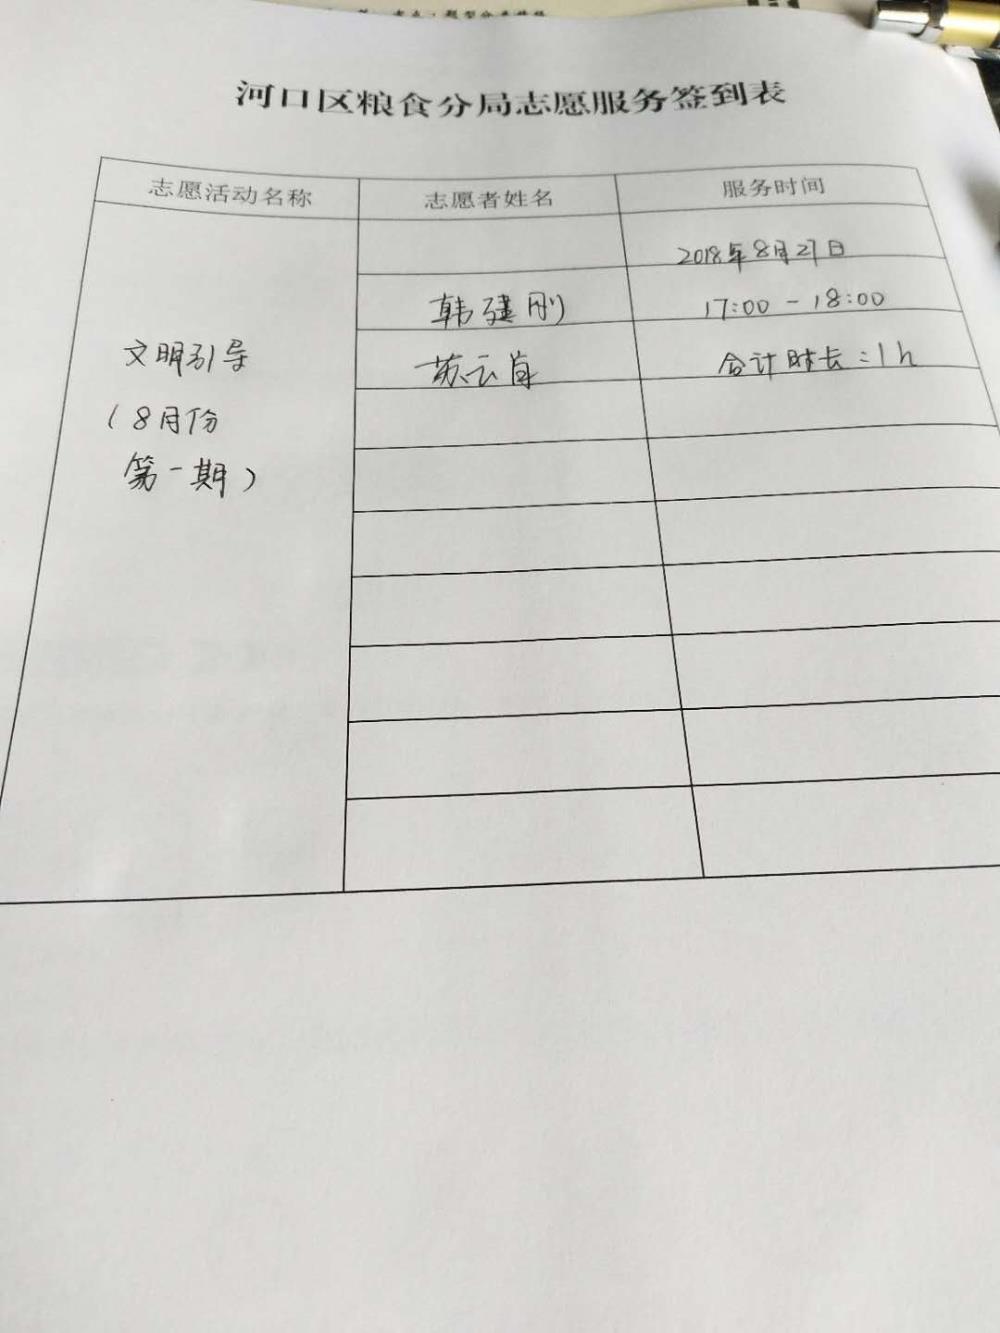 河口区粮食分局志愿服务签到表
志愿活动名称 志愿者姓名 服务时间
2018年8月27日
韩建刚 17:00-18:00
文明引导 苏云 合计时长:1h
(8月份
第一期)